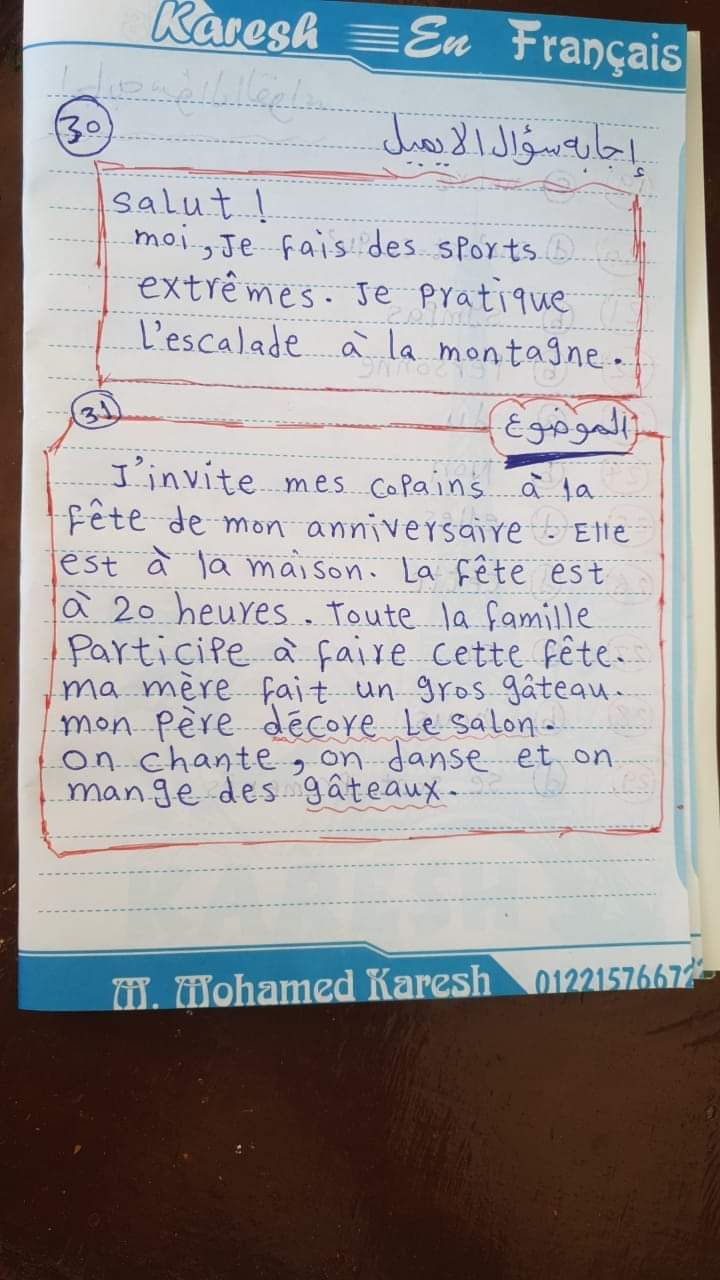 Karesh En Français
30
إجابه سؤال الايميل
Salut !
moi, Je fais des sports
extrêmes. Je pratique
l'escalade à la montagne.
31
الموضوع
J'invite mes copains à la
fête de mon anniversaire. Elle
est à la maison. La fête est
à 20 heures. Toute la famille
Participe à faire cette fête.
ma mère fait un gros gâteau.
mon père décore le salon.
on chante, on danse et on
mange des gâteaux.
M. Mohamed Karesh 0122157667